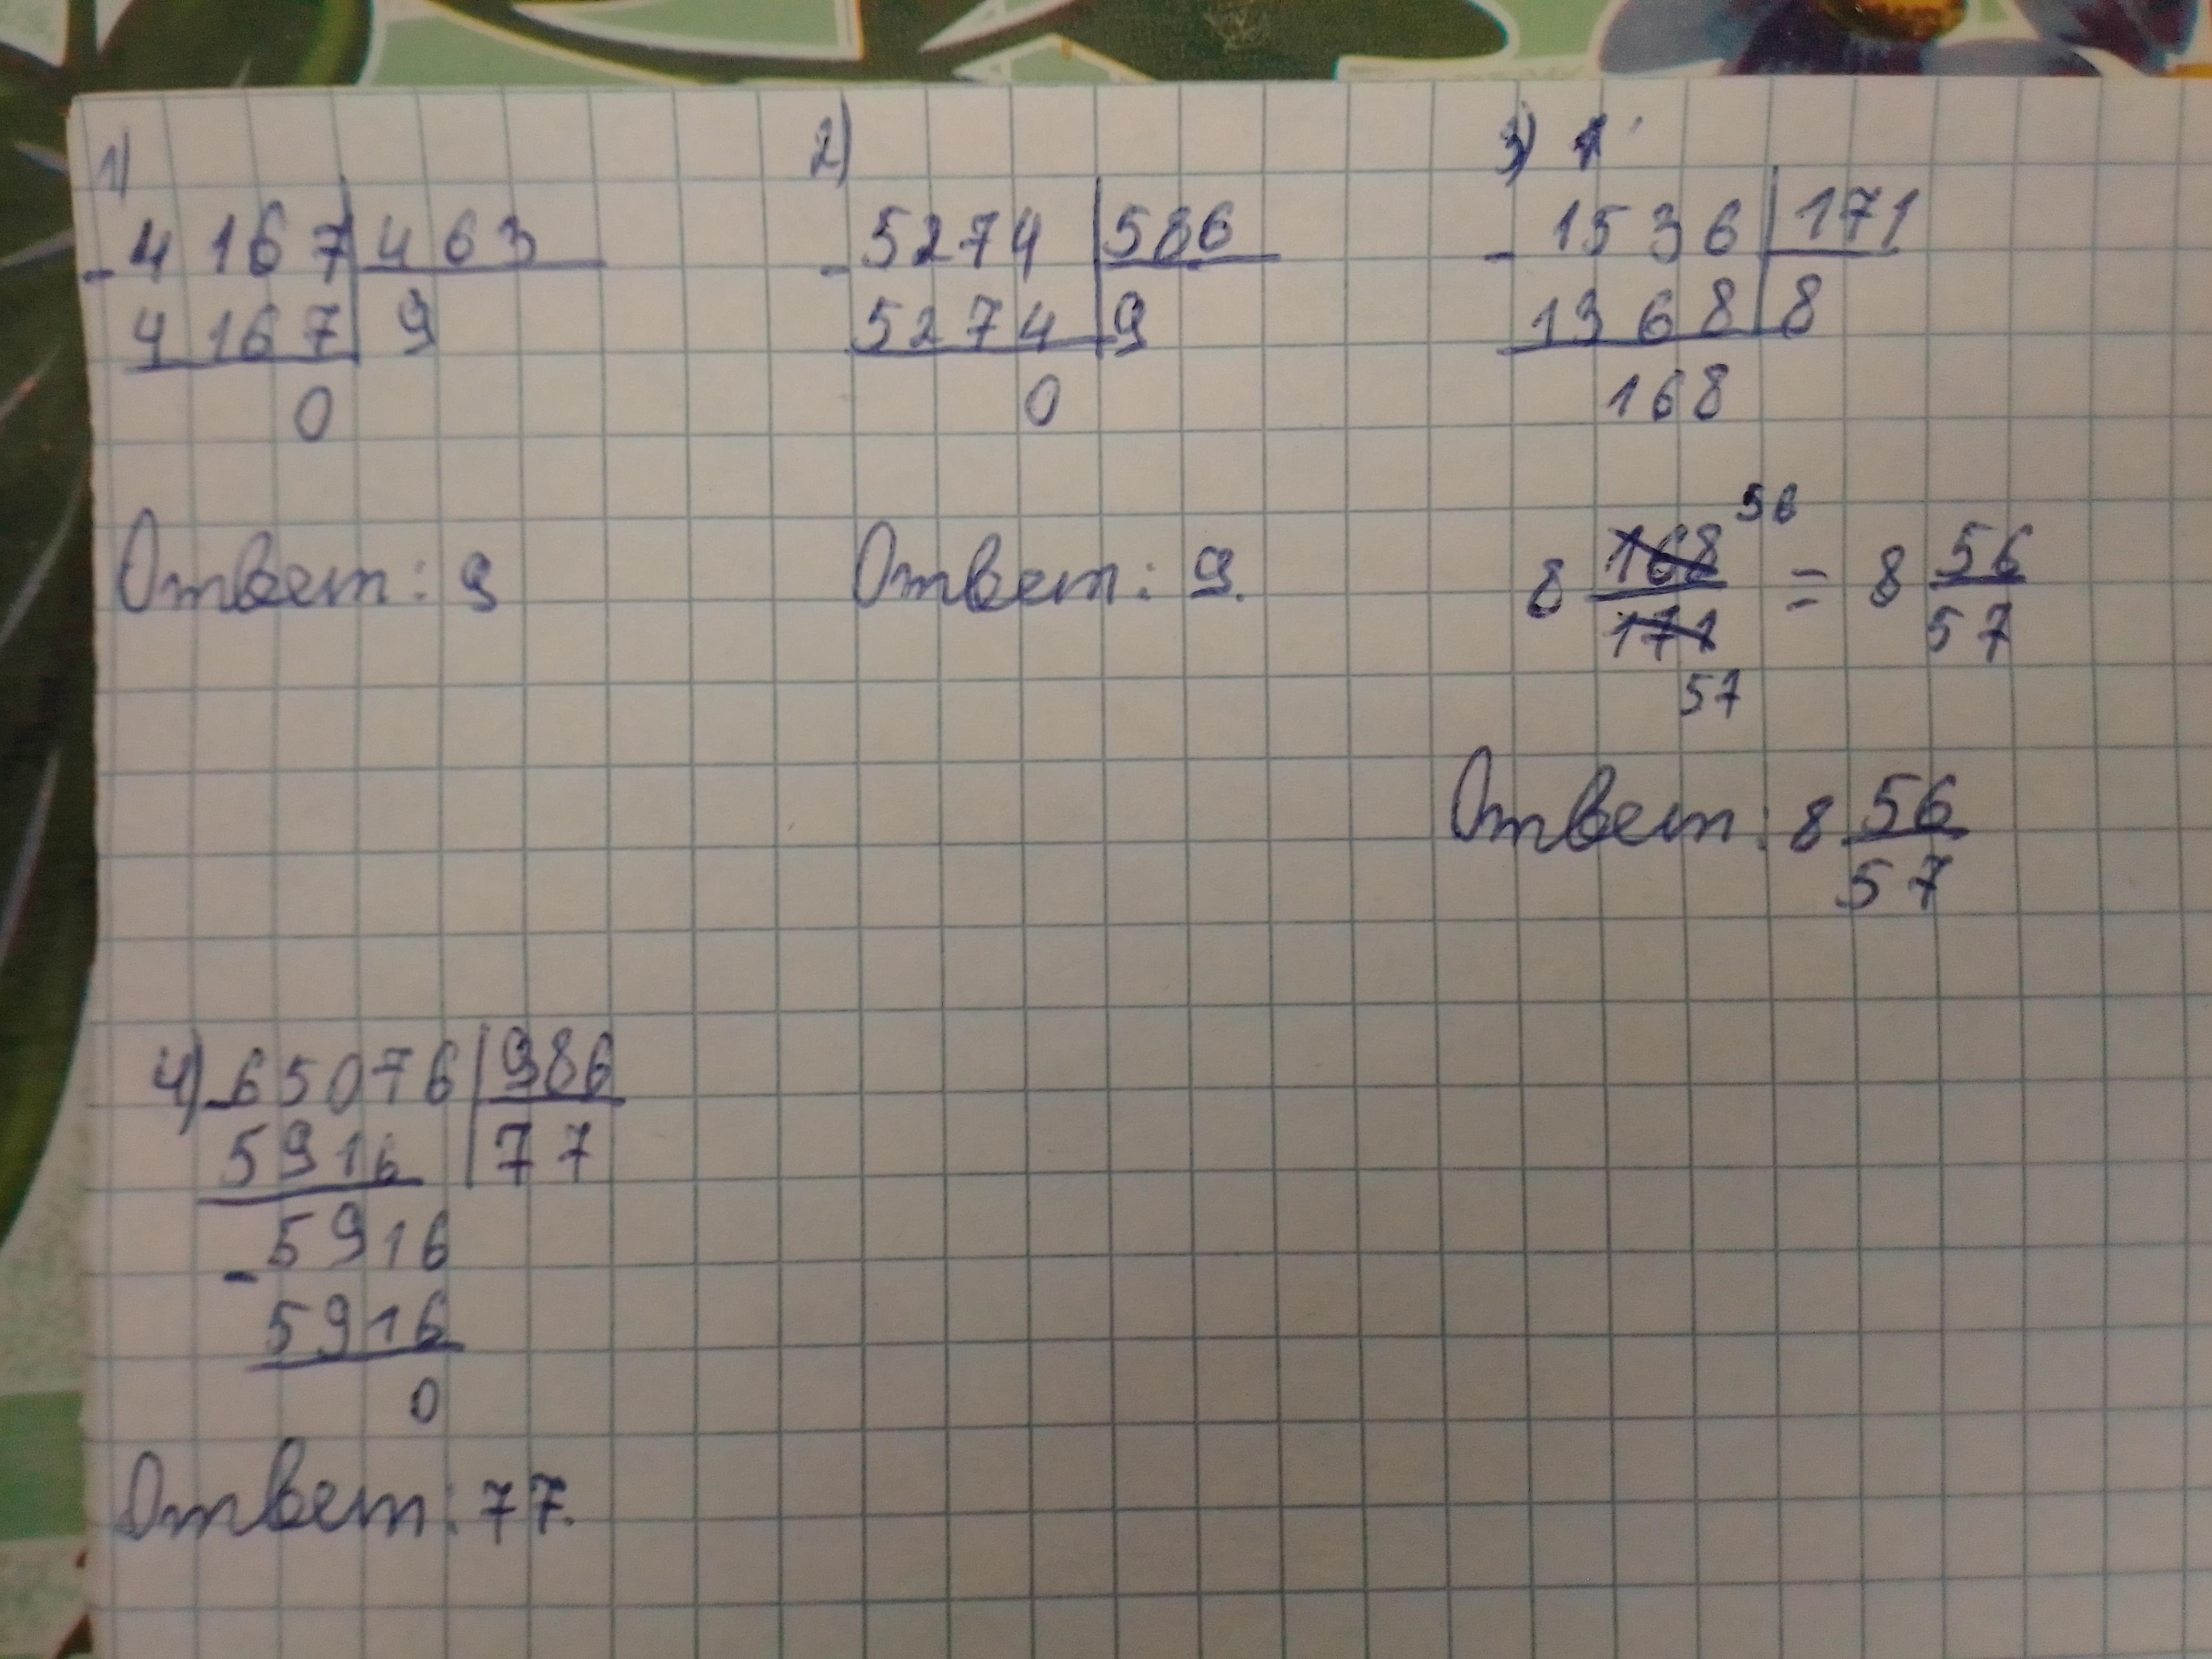 1)
- 4167 | 463
4167 | 9
0
Ответ: 9
2)
- 5274 | 586
5274 | 9
0
Ответ: 9.
3)
- 1536 | 171
1368 | 8
168
8 168/171 56 57 = 8 56/57
Ответ: 8 56/57
4) - 65076 | 986
5916 | 77
- 5916
5916
0
Ответ: 77.